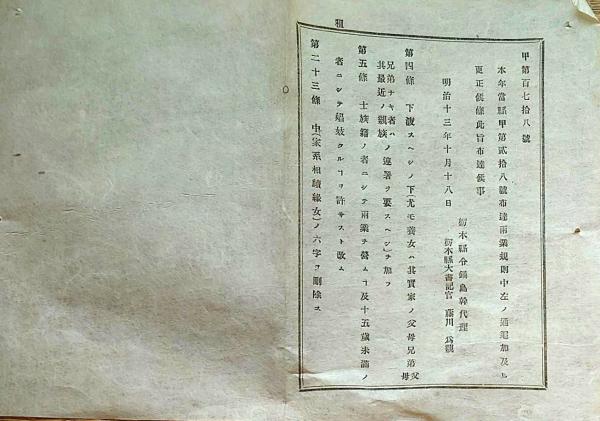 甲第百七拾八號
本年當縣甲第貳拾八號布達兩業規則中左ノ通追加及ヒ
更正候條此旨布達候事
明治十三年十月十八日
栃木縣令鍋島幹代理
栃木縣大書記官 藤川爲親
第四條 下渡スヘシノ下(尤モ養女ハ其實家ノ父母兄弟父母
兄弟ナキ者ハ其最近ノ親族ノ連署ヲ要スヘシ)チ加フ
第五條 士族籍ノ者ニシテ兩業チ營ムヿ及十五歲未滿ノ
者ニシテ娼妓タルヿヲ許サスト改ム
第二十三條 中(家系相續緣女)ノ六字ヲ刪除ス
租